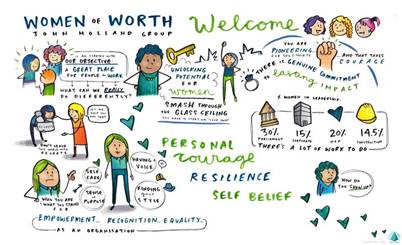 WOMEN OF WORTH
JOHN HOLLAND GROUP
Welcome
OUR OBJECTIVE
A GREAT PLACE
FOR PEOPLE TO WORK
WHAT CAN WE REALLY
DO DIFFERENTLY?
UNLOCKING
POTENTIAL
FOR
women
SMASH THROUGH
THE GLASS CEILING
YOU ARE
PIONEERING
AND THAT TAKES
COURAGE
THERE IS GENUINE COMMITMENT
lasting IMPACT
% WOMEN IN LEADERSHIP
30%
PARLIAMENT
15%
CORPORATE
20%
14.5%
CONSTRUCTION
THERE'S A LOT OF WORK TO DO
PERSONAL
courage
RESILIENCE
SELF BELIEF
HAVING A
VOICE
SELF
CARE
SENSE OF
PURPOSE
FINDING YOUR
STYLE
WHO YOU ARE
WHAT YOU STAND
FOR
HOW DO
YOU SHOW UP?
EMPOWERMENT... RECOGNITION... EQUALITY...
AS AN ORGANISATION